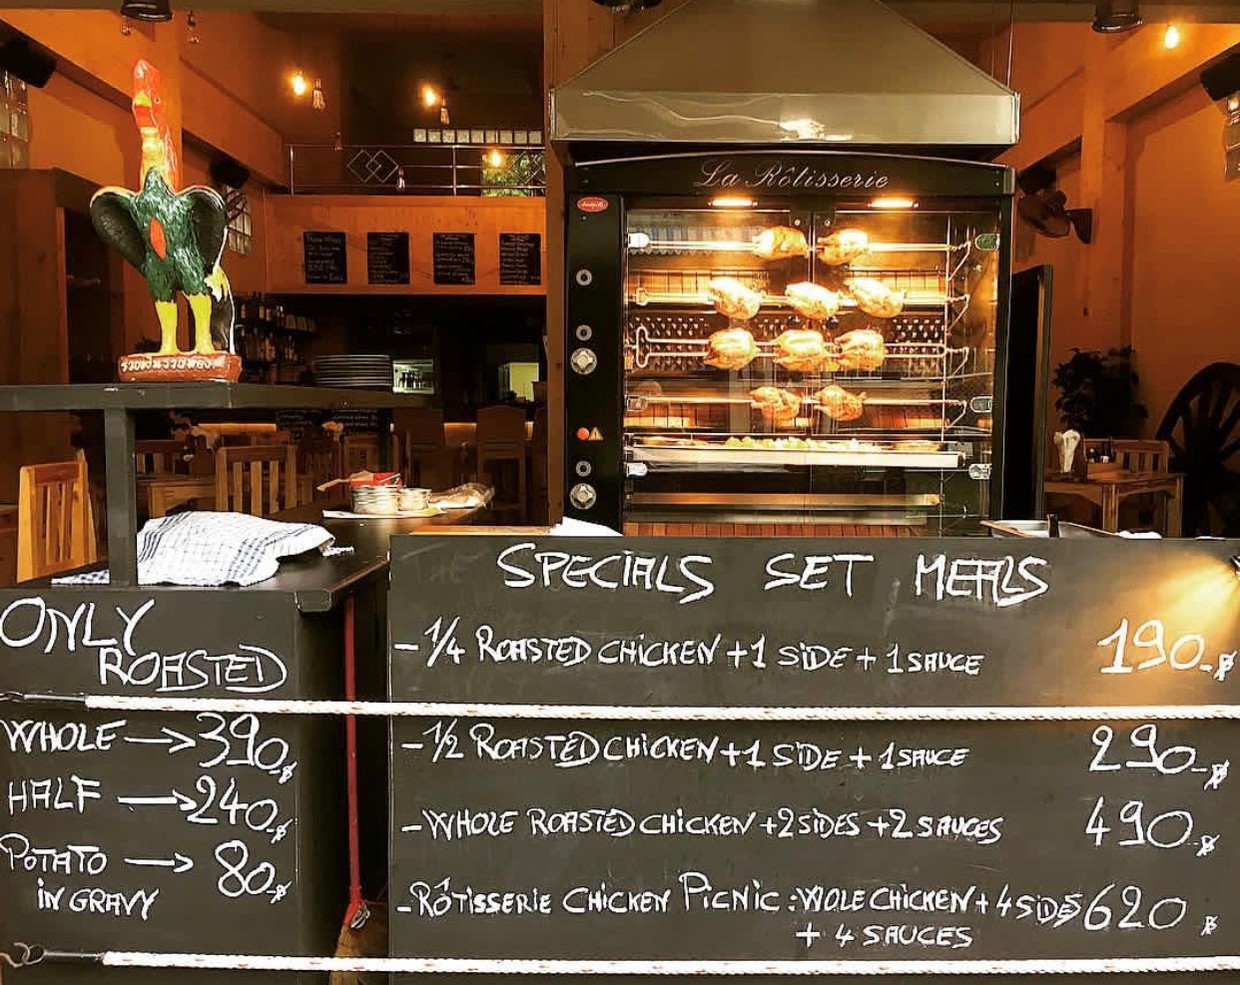 La Rôtisserie
รวยเงินรวยทอง
ONLY
ROASTED
WHOLE → 390.-฿
HALF → 240.-฿
POTATO → 80.-฿
iN GRAVY
SPECIALS SET MEALS
- 1/4 ROASTED CHiCKEN + 1 SiDE + 1 SAUCE 190.-฿
- 1/2 ROASTED CHiCKEN + 1 SiDE + 1 SAUCE 290.-฿
- WHOLE ROASTED CHiCKEN + 2 SiDES + 2 SAUCES 490.-฿
- RÔTiSSERiE CHiCKEN PiCNiC : WOLE CHiCKEN + 4 SiDES 620 ฿
+ 4 SAUCES